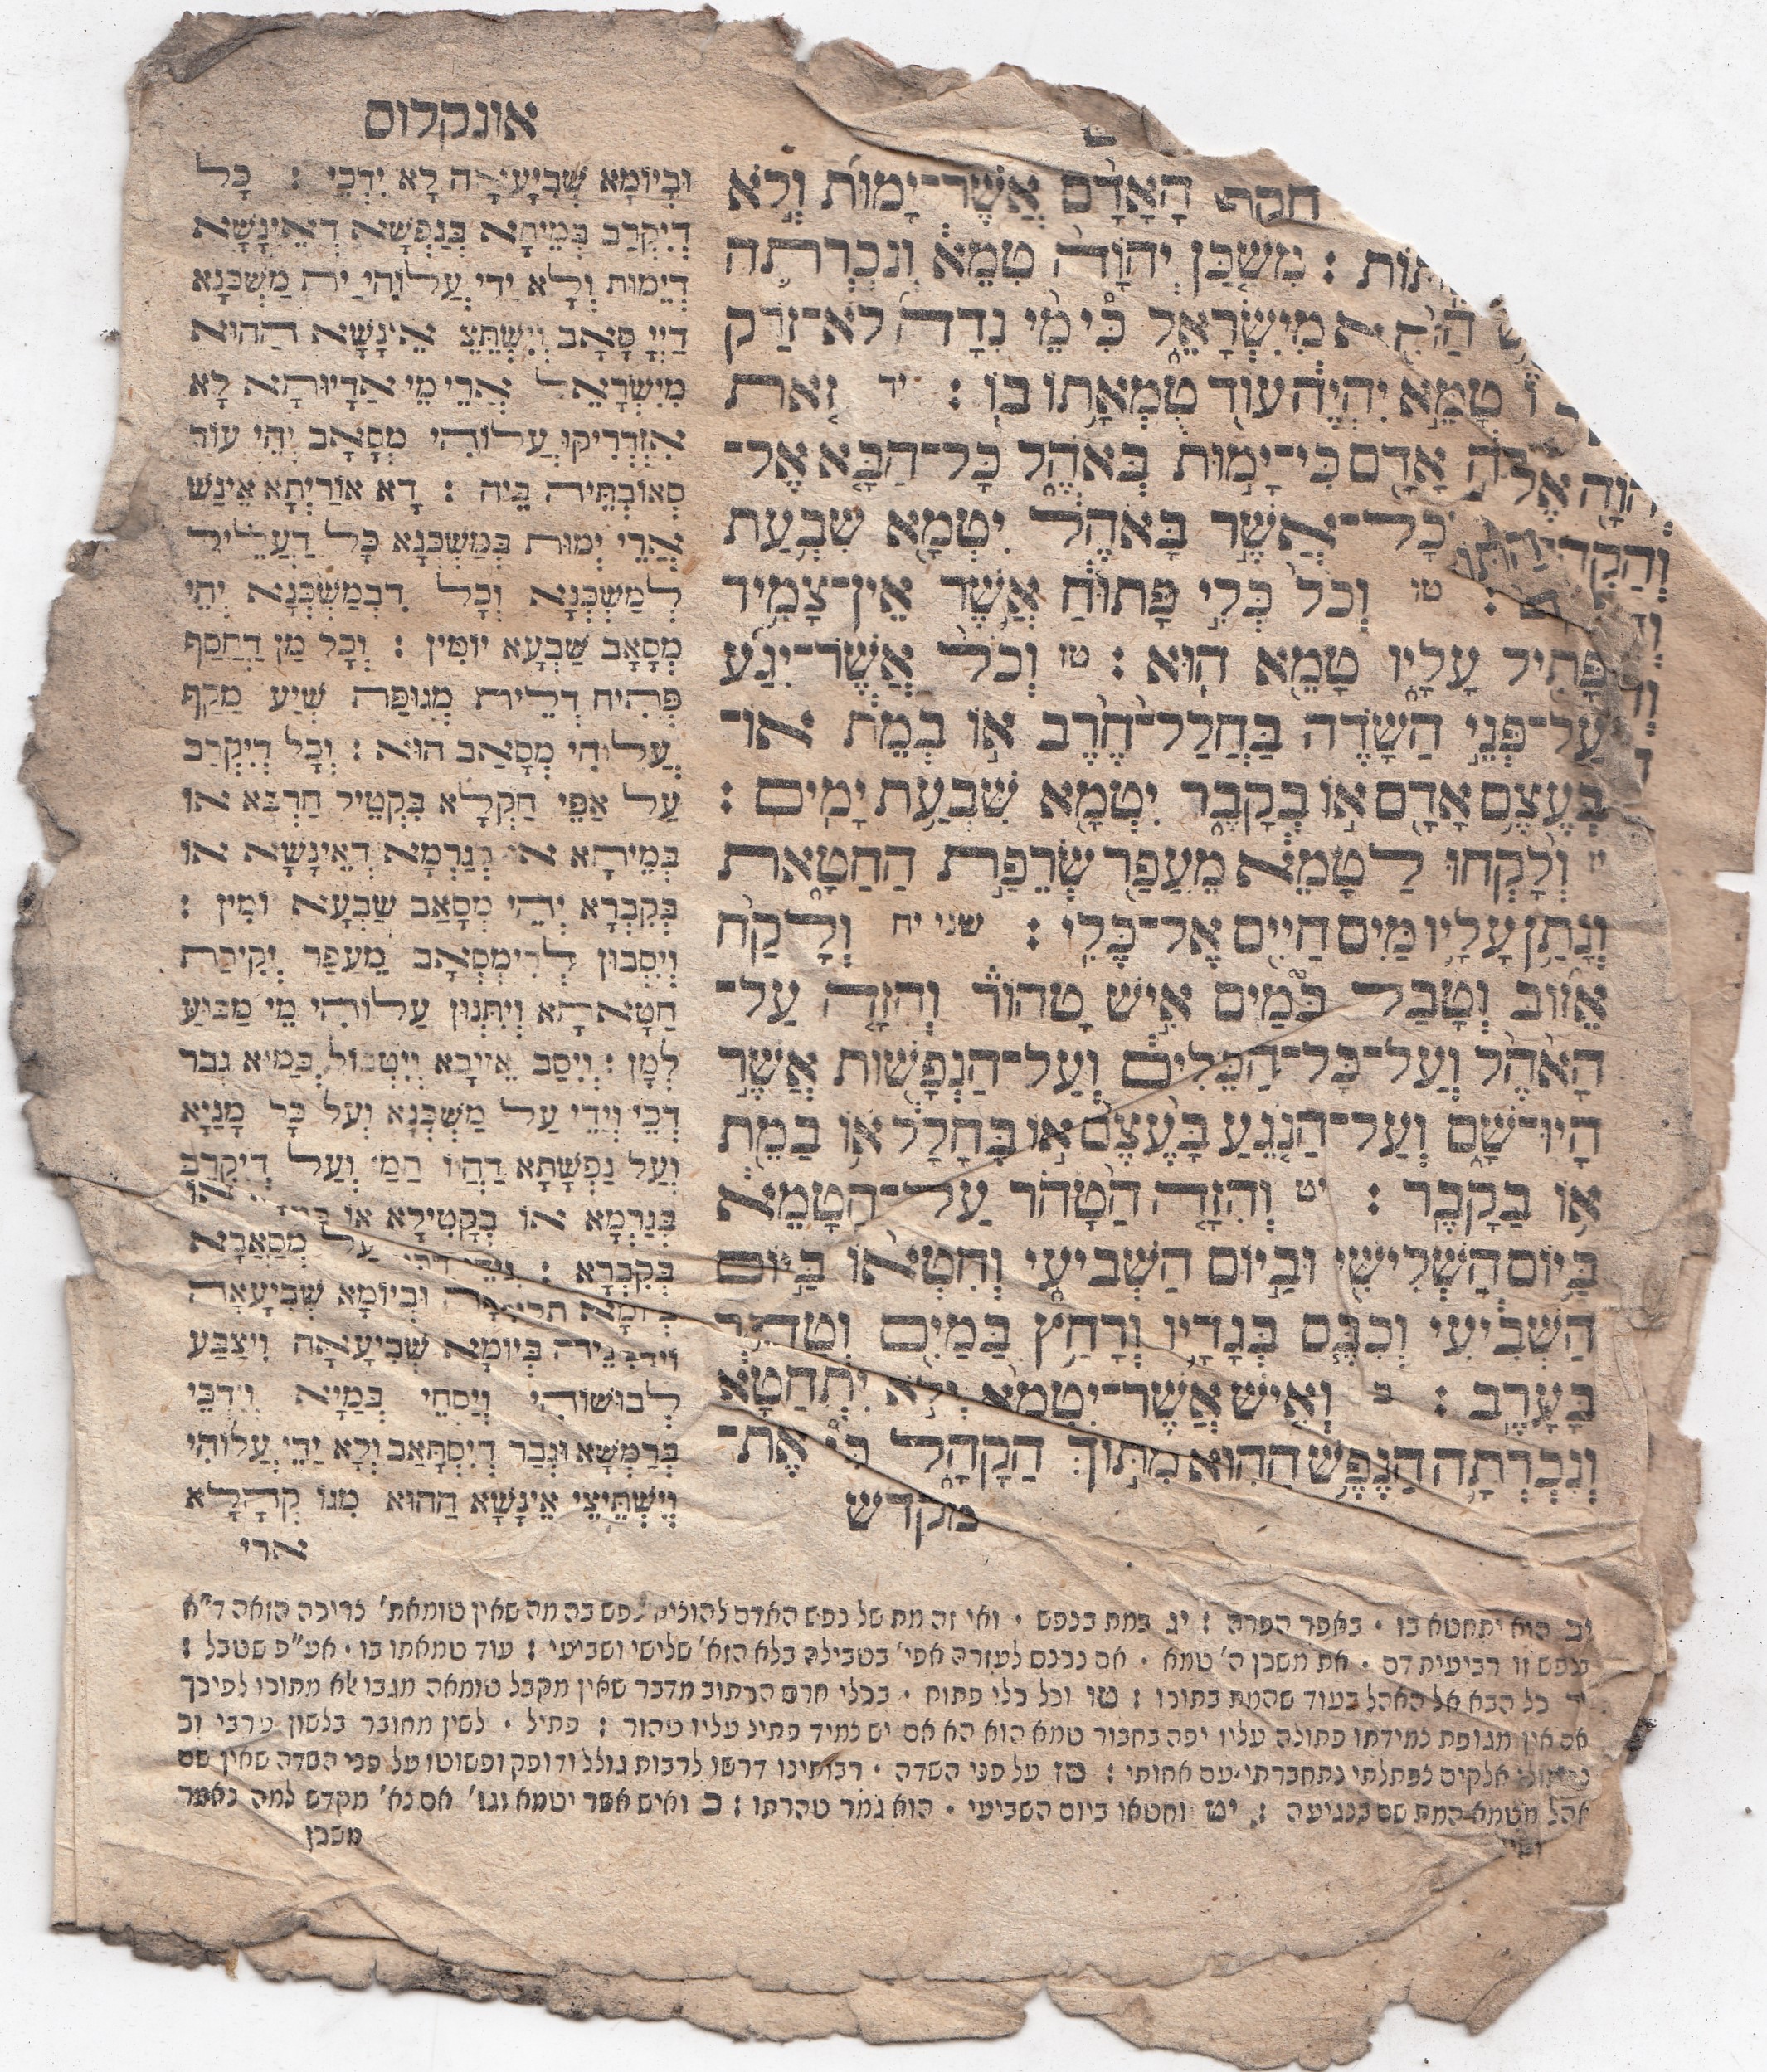 אונקלוס
חקת הָאָדָם אֲשֶׁר־יָמוּת וְלֹא
מִשְׁכַּן יְהוָֹה טִמֵּא וְנִכְרְתָה
מִיִּשְׂרָאֵל כִּי מֵי נִדָּה לֹא־זֹרַק
טָמֵא יִהְיֶה עוֹד טֻמְאָתוֹ בוֹ : יד זֹאת
אָדָם כִּי־יָמוּת בְּאֹהֶל כָּל־הַבָּא אֶל־
כָל־אֲשֶׁר בָּאֹהֶל יִטְמָא שִׁבְעַת
טו וְכֹל כְּלִי פָתוּחַ אֲשֶׁר אֵין־צָמִיד
פָּתִיל עָלָיו טָמֵא הוּא : טז וְכֹל אֲשֶׁר־יִגַּע
עַל־פְּנֵי הַשָּׂדֶה בַּחֲלַל־חֶרֶב אוֹ בְמֵת אוֹ־
בְעֶצֶם אָדָם אוֹ בְקָבֶר יִטְמָא שִׁבְעַת יָמִים :
יז וְלָקְחוּ לַטָּמֵא מֵעֲפַר שְׂרֵפַת הַחַטָּאת
וְנָתַן עָלָיו מַיִם חַיִּים אֶל־כֶּלִי : שני יח וְלָקַח
אֵזוֹב וְטָבַל בַּמַּיִם אִישׁ טָהוֹר וְהִזָּה עַל־
הָאֹהֶל וְעַל־כָּל־הַכֵּלִים וְעַל־הַנְּפָשׁוֹת אֲשֶׁר
הָיוּ־שָׁם וְעַל־הַנֹּגֵעַ בַּעֶצֶם אוֹ בֶחָלָל אוֹ בַמֵּת
אוֹ בַקָּבֶר : יט וְהִזָּה הַטָּהֹר עַל־הַטָּמֵא
בַּיּוֹם הַשְּׁלִישִׁי וּבַיּוֹם הַשְּׁבִיעִי וְחִטְּאוֹ בַּיּוֹם
הַשְּׁבִיעִי וְכִבֶּס בְּגָדָיו וְרָחַץ בַּמַּיִם וְטָהֵר
בָּעָרֶב : כ וְאִישׁ אֲשֶׁר־יִטְמָא וְלֹא יִתְחַטָּא
וְנִכְרְתָה הַנֶּפֶשׁ הַהִוא מִתּוֹךְ הַקָּהָל כִּי אֶת־
מקדש
וּבְיוֹמָא שְׁבִיעָאָה לָא יִדְכֵּי : כָּל
דְיִקְרַב בְּמֵיתָא בְּנַפְשָׁא דְאֵינָשָׁא
דְיֵמוּת וְלָא יַדֵּי עֲלוֹהִי יַת מַשְׁכְּנָא
דַיְיָ סָאָב וְיִשְׁתֵּצֵי אֵינָשָׁא הַהוּא
מִיִּשְׂרָאֵל אֲרֵי מֵי אַדָּיוּתָא לָא
אִזְדְּרִיקוּ עֲלוֹהִי מְסָאָב יְהֵי עוֹד
סְאוֹבְתֵּיהּ בֵּיהּ : דָא אוֹרַיְתָא אֵינַשׁ
אֲרֵי יְמוּת בְּמַשְׁכְּנָא כָּל דְעָלֵיל
לְמַשְׁכְּנָא וְכָל דִבְמַשְׁכְּנָא יְהֵי
מְסָאָב שַׁבְעָא יוֹמִין : וְכָל מַן דַחֲסַף
פְּתִיחַ דְלֵית מְגוּפַּת שְׁיַע מַקַּף
עֲלוֹהִי מְסָאַב הוּא : וְכָל דְיִקְרַב
עַל אַפֵּי חַקְלָא בִּקְטֵיל חַרְבָּא אוֹ
בְּמֵיתָא אוֹ בְגַרְמָא דְאֵינָשָׁא אוֹ
בְּקִבְרָא יְהֵי מְסָאַב שַׁבְעָא יוֹמִין :
וְיִסְבוּן לְדִימְסָאָב מֵעֲפַר יְקִידַת
חַטָּאתָא וְיִתְּנוּן עֲלוֹהִי מֵי מַבּוּעַ
לְמָן : וְיִסַּב אֵיזוֹבָא וְיִטְבּוֹל בְּמַיָּא גְבַר
דְכֵי וְיַדֵּי עַל מַשְׁכְּנָא וְעַל כָּל מָנַיָּא
וְעַל נַפְשָׁתָא דַהֲווֹ תַמָּן וְעַל דְיִקְרַב
בְּגַרְמָא אוֹ בְקָטִילָא אוֹ
בְּקִבְרָא : עַל מְסָאֲבָא
בְּיוֹמָא תְלִיתָאָה וּבְיוֹמָא שְׁבִיעָאָה
וִידַכִּינֵיהּ בְּיוֹמָא שְׁבִיעָאָה וִיצַבַּע
לְבוּשׁוֹהִי וְיַסְחֵי בְּמַיָּא וְיִדְכֵּי
בְּרַמְשָׁא וּגְבַר דְיִסְתָּאַב וְלָא יַדֵּי עֲלוֹהִי
וְיִשְׁתֵּיצֵי אֵינָשָׁא הַהוּא מִגּוֹ קְהָלָא
ארי
יב הוא יתחטא בו · באפר הפרה : יג במת בנפש · ואי זה מת של נפש האדם להוציא נפש בהמה שאין טומאת׳ צריכה הזאה ד״א
בנפש זו רביעית דם · את משכן ה׳ טמא · אם נכנס לעזרה אפי׳ בטבילה בלא הזא׳ שלישי ושביעי : עוד טמאתו בו · אע״פ שטבל :
יד כל הבא אל האהל בעוד שהמת בתוכו : טו וכל כלי פתוח · בכלי חרס הכתוב מדבר שאין מקבל טומאה מגבו אלא מתוכו לפיכך
אם אין מגופת צמידתו פתולה עליו יפה בחבור טמא הוא הא אם יש צמיד פתיל עליו טהור : פתיל · לשון מחובר בלשון ערבי וכ
נפתולי אלקים נפתלתי נתחברתי עם אחותי : טז על פני השדה · רבותינו דרשו לרבות גולל ודופק ופשוטו על פני השדה שאין שם
אהל מטמא המת שם בנגיעה : יט וחטאו ביום השביעי · הוא גמר טהרתו : כ ואיש אשר יטמא וגו׳ אם נא׳ מקדש למה נאמר
משכן